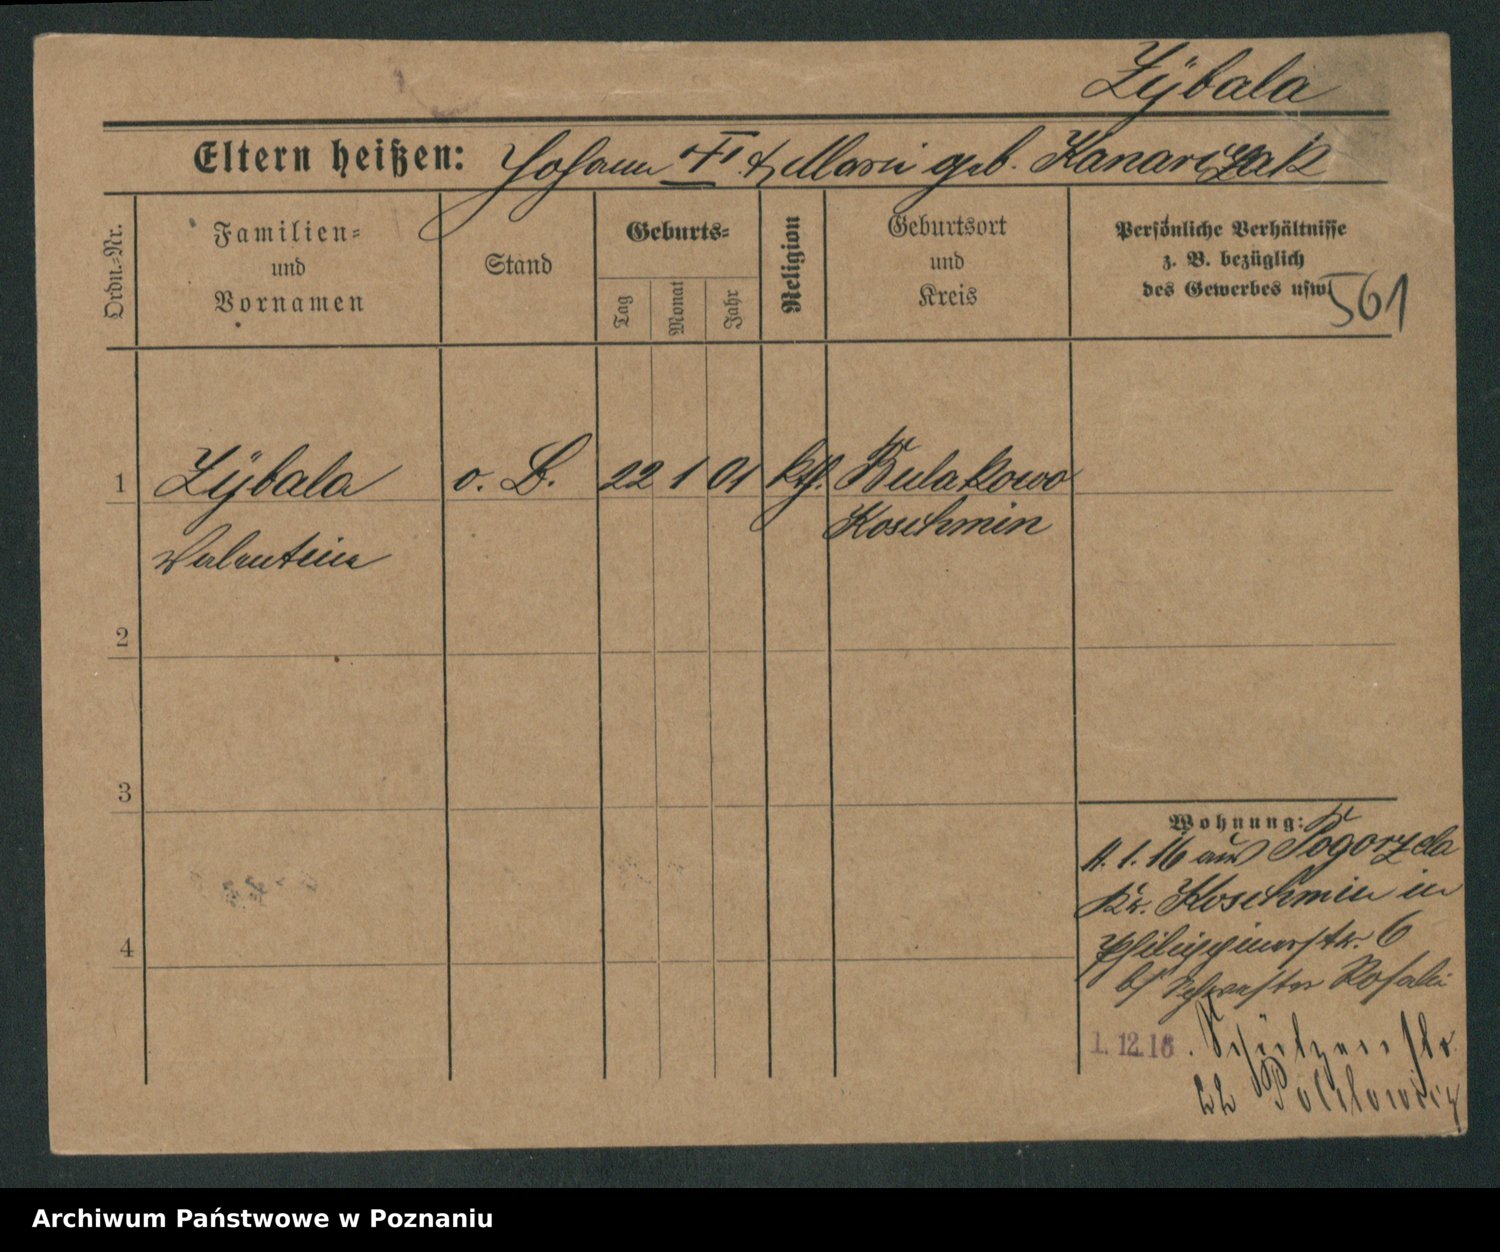 Zÿbala
Eltern heißen: Johann † & Marie geb. Kanarczak
Ordn.-Nr.
Familien-
und
Vornamen
Stand
Geburts-
Tag
Monat
Jahr
Religion
Geburtsort
und
Kreis
Persönliche Verhältnisse
z. B. bezüglich
des Gewerbes usw.
561
1 Zÿbala o. B. 22 1 01 kth. Bulakowo
Koschmin
Valentine
2
3
4
Wohnung:
11. 1. 16 aus Pogorzela
Kr. Koschmin in
Philippinenstr. 6
bei Schwester Rosalie
1. 12. 16. Schützenstr.
Archiwum Państwowe w Poznaniu